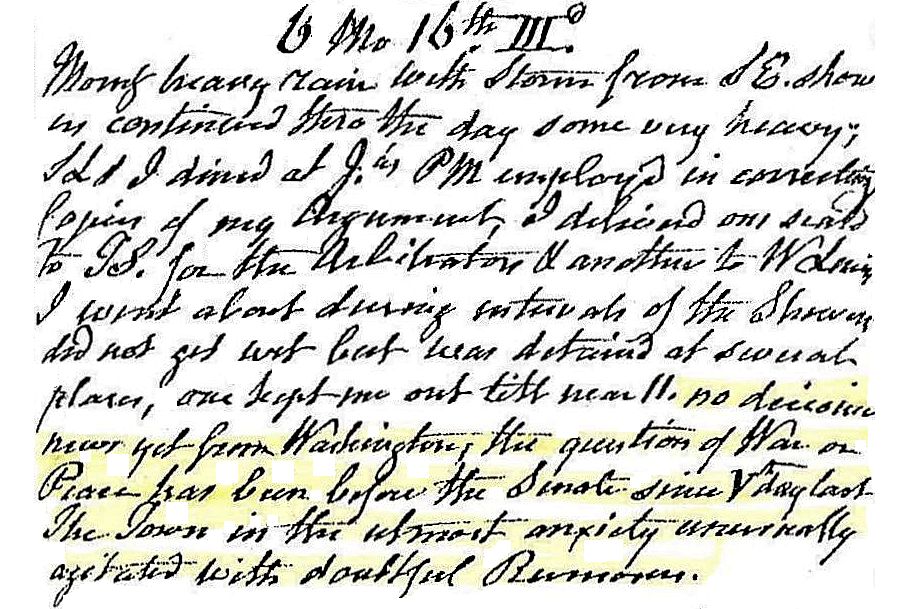 6 Mo 16th. IIId.
Morng heavy rain with Storm from S E. show
ers continued thro the day some very heavy;
S L & I dined at J.'s PM employ'd in correcting
Copies of my Argument, I deliverd one seal'd
to T S. for the Arbitrators & another to W Lewis
I went about during intervals of the Showers
did not get wet but was detained at several
places, one kept me out till near 11. no decisive
news yet from Washington; the question of War or
Peace has been before the Senate since Vth day last
The Town in the utmost anxiety universally
agitated with doubtful Rumours.